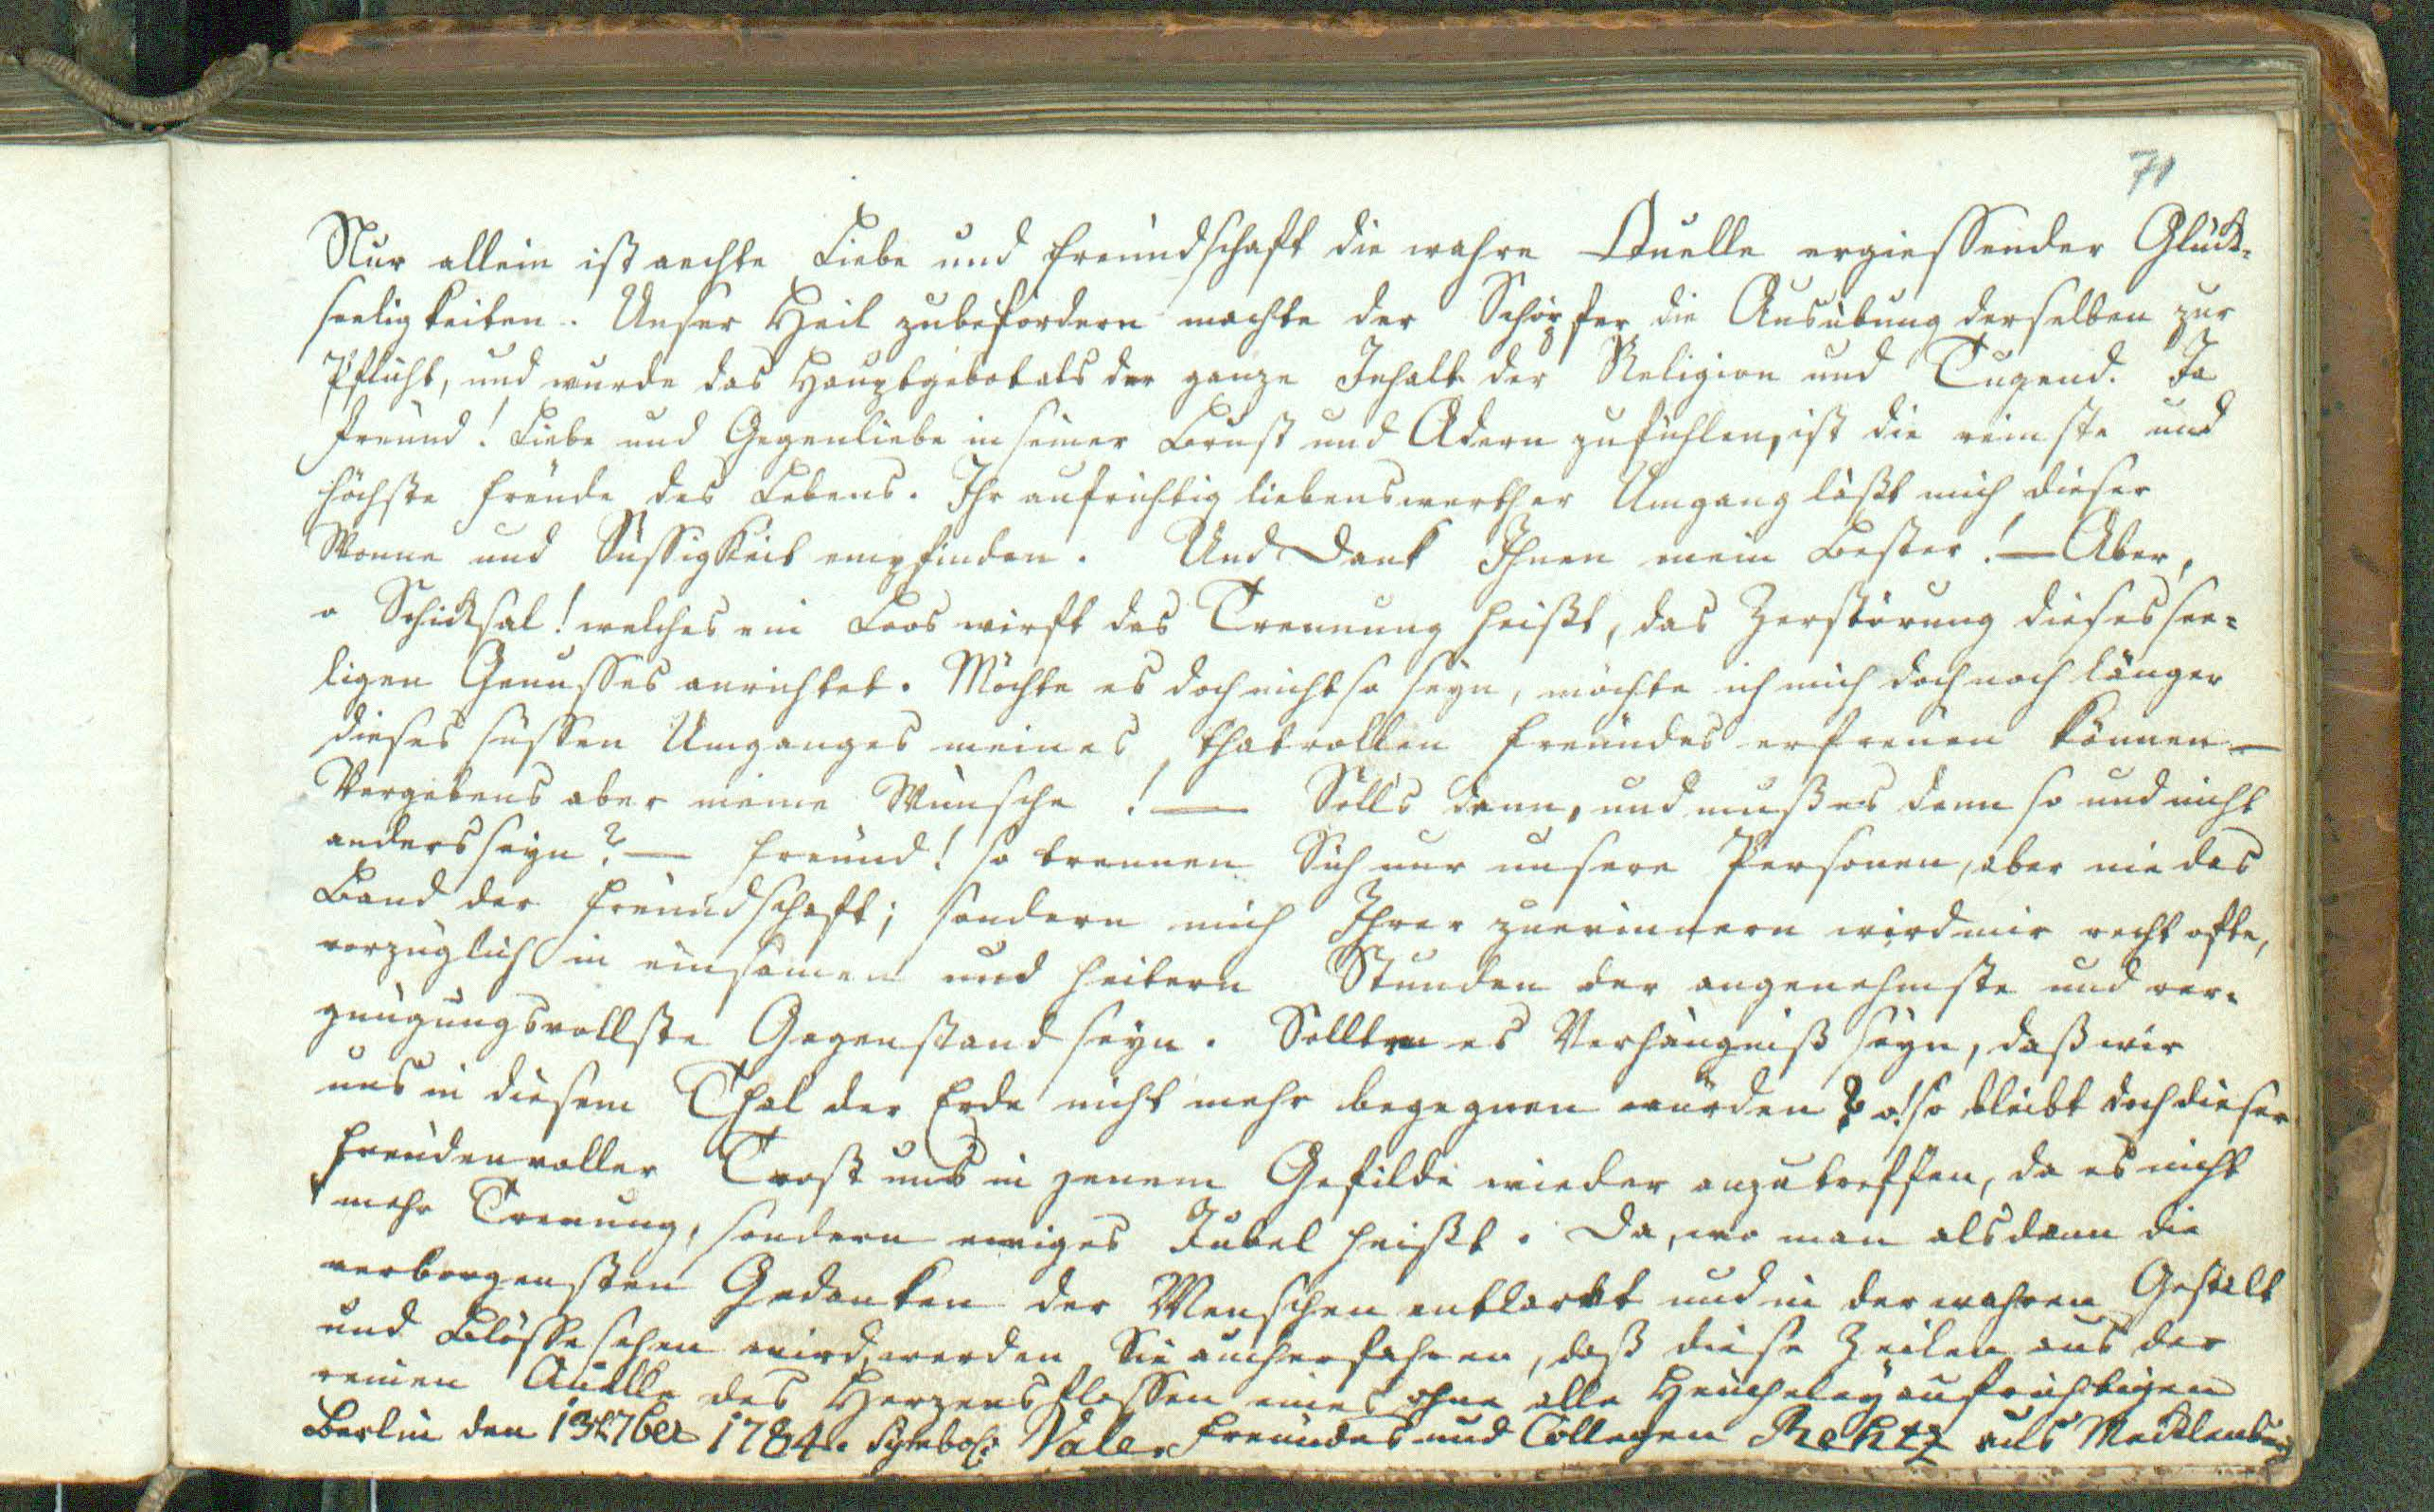 71
Nur allein ist aechte Liebe und Freundschaft die wahre Quelle ergiessender Glück-
seeligkeiten. Unser Heil zubefördern machte der Schöpfer die Ausübung derselben zur
Pflicht, und wurde das Hauptgebot als der ganze Inhalt der Religion und Tugend. Ja
Freund! Liebe und Gegenliebe in seiner Brust und Adern zufühlen, ist die reinste und
höchste Freude des Lebens. Ihr aufrichtig liebenswerther Umgang läßt mich dieser
Wonne und Süssigkeit empfinden. Und Dank Ihnen mein Bester! — Aber,
o Schicksal! welches ein Loos wirft das Trennung heißt, das Zerstörung dieses see-
ligen Genusses anrichtet. Möchte es doch nicht so seyn, möchte ich mich doch noch länger
dieses süssen Umganges meines thatvollen Freundes erfreuen können —
Vergebens aber meine Wünsche! — Solls denn, und muß es denn so und nicht
anders seyn? — Freund! so trennen Sich nur unsere Personen, aber nie das
Band der Freundschaft; sondern mich Ihrer zuerinnern wird mir recht ofte,
vorzüglich in einsamen und heitern Stunden der angenehmste und ver-
gnügungsvollste Gegenstand seyn. Sollten es Verhängniß seyn, daß wir
uns in diesem Thal der Erde nicht mehr begegnen würden? o! so bleibt doch dieser
freudenvoller Trost uns in jenem Gefilde wieder anzutreffen, da es nicht
mehr Trenung, sondern ewiges Jubel heißt. Da, wo man alsdann die
verborgensten Gedanken der Menschen entlarvt und in der wahren Gestalt
und Blösse sehen wird, werden Sie auch erfahren, daß diese Zeilen aus der
reinen Quelle des Herzens flossen eines ohne alle Heucheley aufrichtigen
Berlin den 13t 7ber 1784. Symbol: Vale. Freundes und Collegen Rehtz aus Mecklenburg